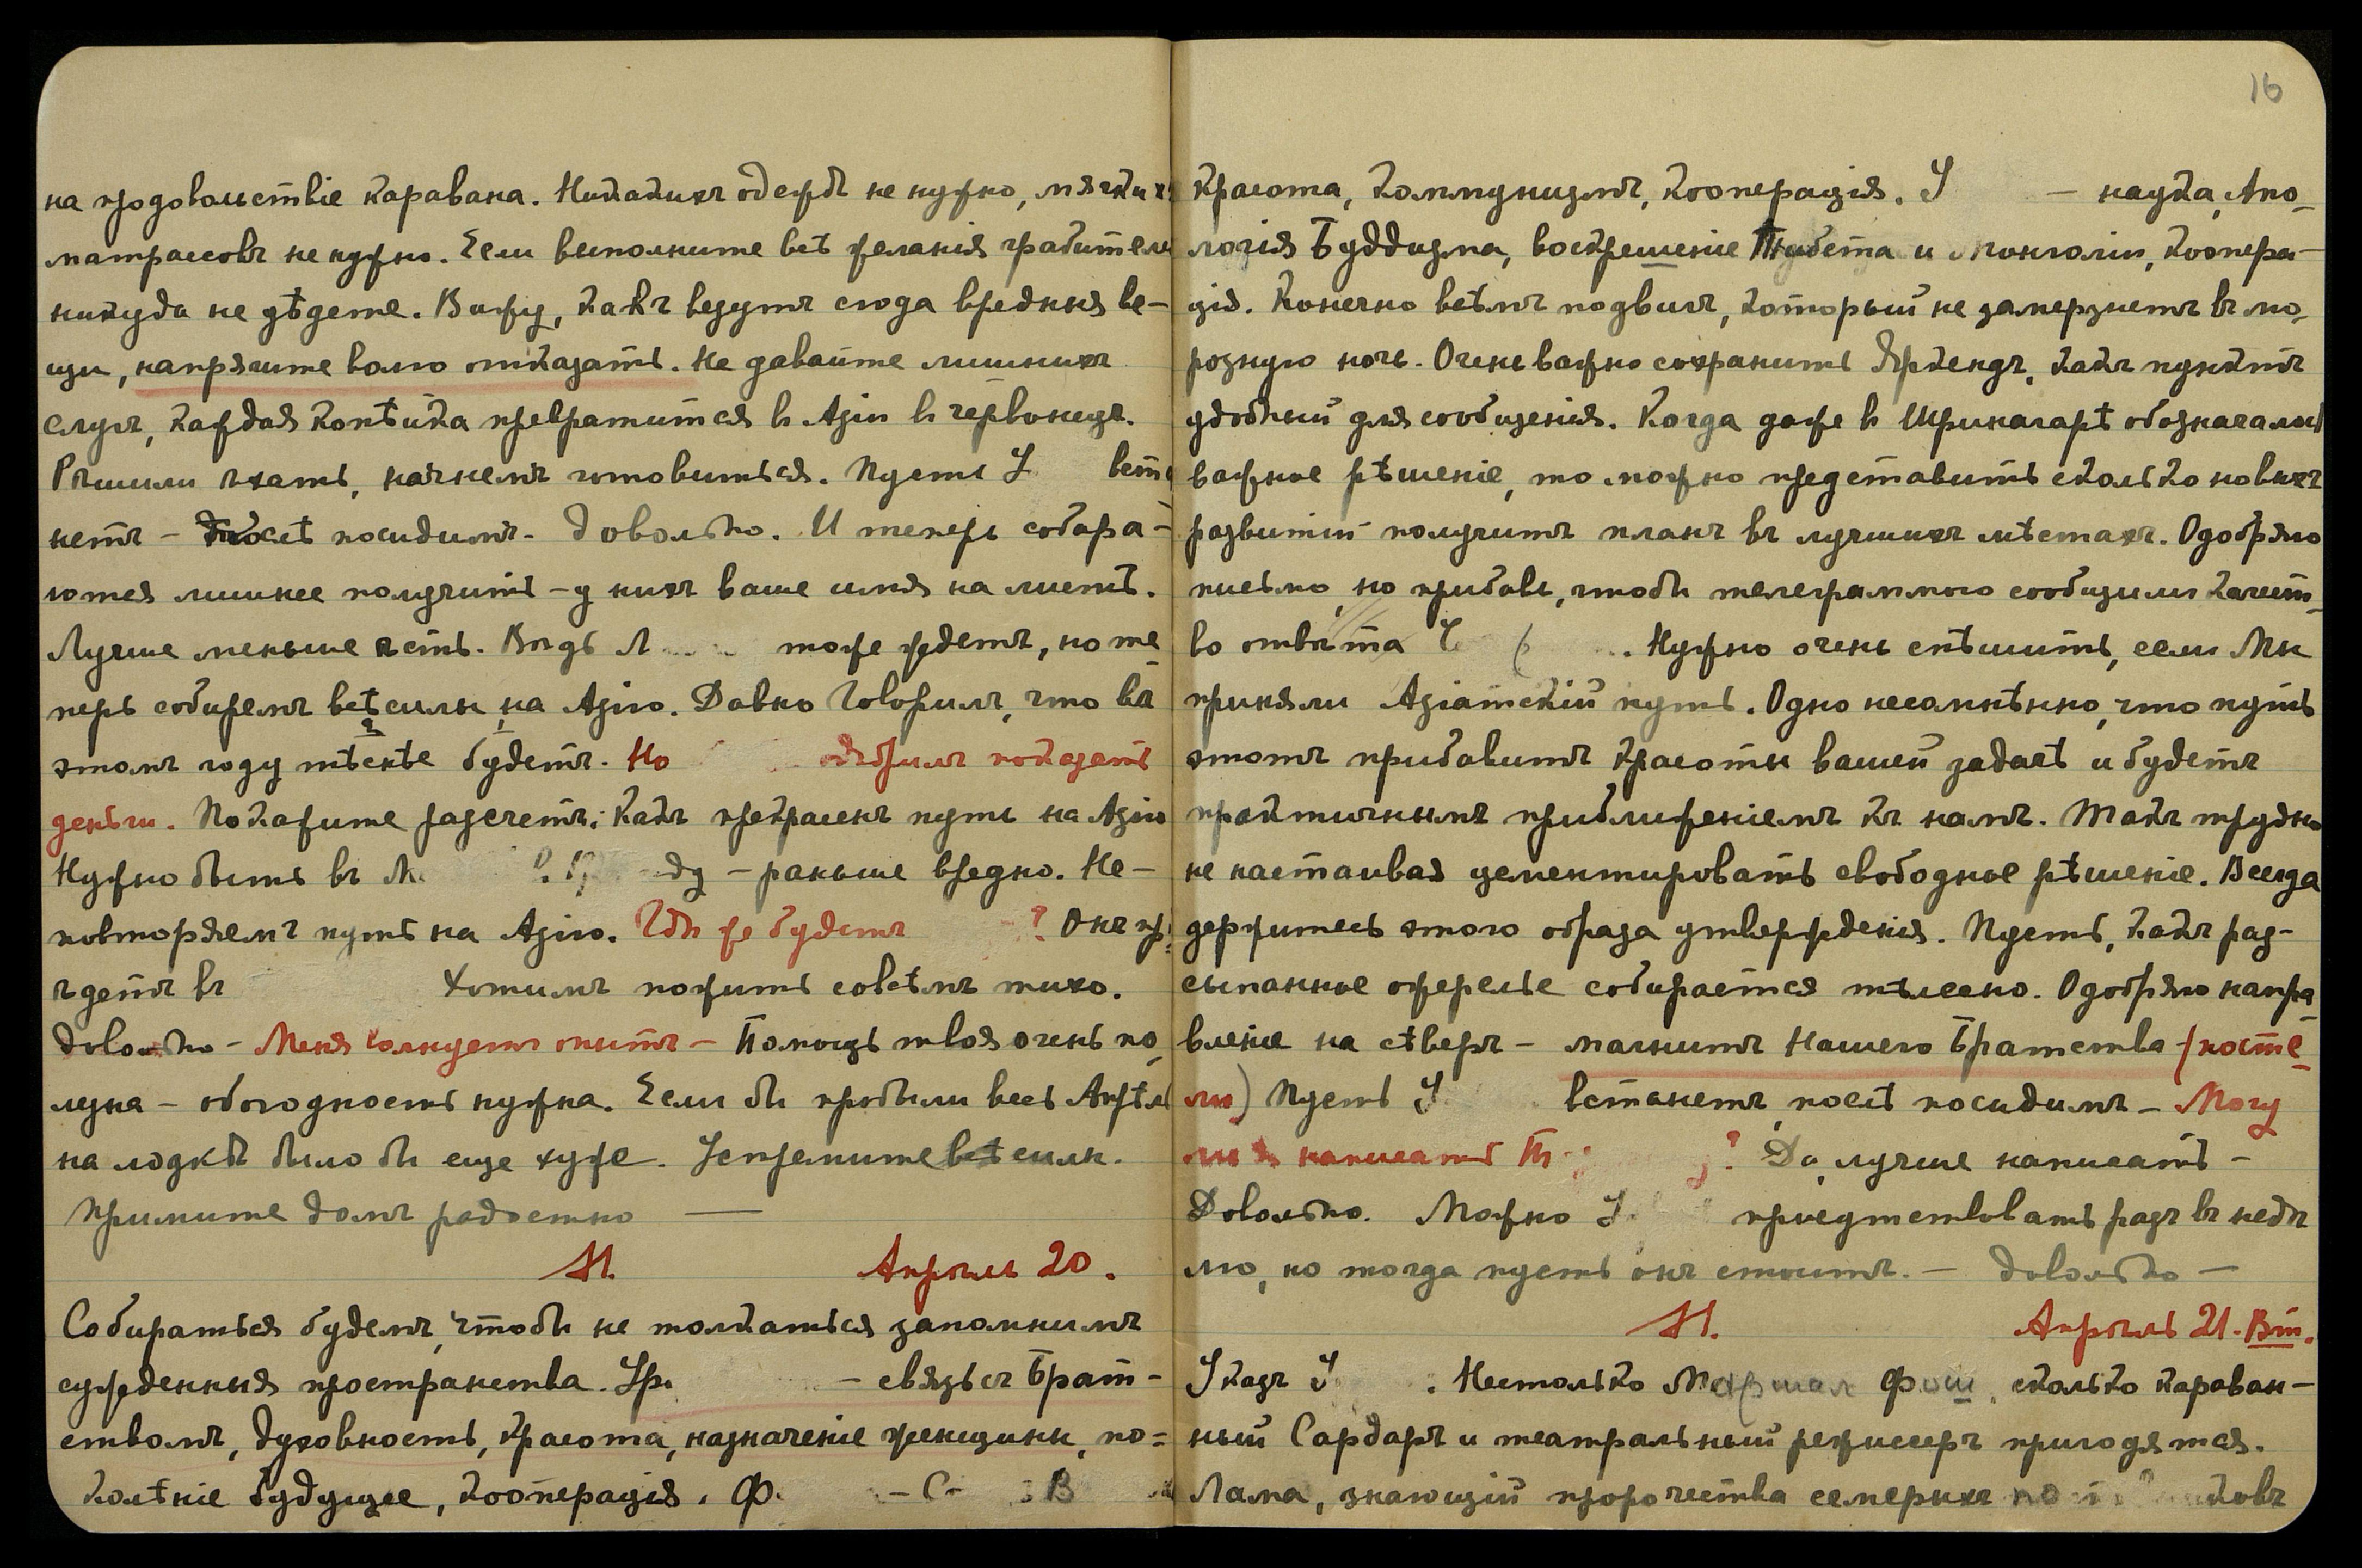 на продовольствіе каравана. Никакихъ одеждъ не нужно, мягких
матрасовъ не нужно. Если выполните всѣ желанія грабителе
никуда не уѣдете. Вижу, какъ везутъ сюда вредныя ве-
щи, напрягите волю отказать. Не давайте лишнихъ
слугъ, каждая копѣйка превратится в Азіи в червонецъ.
Рѣшили ѣхать, начнемъ готовиться. Пусть У вста
нетъ – послѣ посидимъ – довольно. И теперь собира-
ются лишнее получить – у нихъ ваше имя на листѣ.
Лучше меньше ѣсть. Вѣдь Л тоже ждетъ, но те
перь соберемъ всѣ силы на Азію. Давно Говорилъ, что въ
этомъ году тѣснѣе будетъ. Но одобрилъ показать
деньги. Покажите разсчетъ; какъ прекрасенъ путь на Азію
Нужно быть въ М ду – раньше вредно. Не-
повторяемъ путь на Азію. Гдѣ же будетъ ? Онъ пр
ѣдетъ въ Хотимъ пожить совсѣмъ тихо.
довольно – Меня волнуетъ опытъ – Помощь твоя очень по
лезна – обоюдность нужна. Если бы пробыли весь Апрѣль
на лодкѣ было бы еще хуже. Устремите всѣ силы.
Примите домъ радостно —
М. Апрѣль 20.
Собираться будемъ, чтобы не толкаться запомнимъ
сужденныя пространства. Ур. – связь съ Брат-
ствомъ, духовность, красота, назначеніе женщины, по-
колѣніе будущее, кооперація. Ф. – С – В
16
красота, коммунизмъ, кооперація. У – наука, Апо-
логія Буддизма, воскрешеніе Тибета и Монголіи, коопера-
ція. Конечно всѣмъ подвигъ, который не замерзнетъ въ мо-
розную ночь. Очень важно сохранить Яркендъ, какъ пунктъ
удобный для сообщенія. Когда даже в Шринагарѣ обозначались
важное рѣшеніе, то можно представить сколько новыхъ
развитій получитъ планъ въ лучшихъ мѣстахъ. Одобряю
письмо, но прибавь, чтобы телеграммою сообщили качест-
во отвѣта . Нужно очень спѣшить, если Мы
приняли Азіатскій путь. Одно несомнѣнно, что путь
этотъ прибавитъ красоты вашей задачѣ и будетъ
практичнымъ приближеніемъ къ намъ. Такъ трудно
не настаивая цементировать свободное рѣшеніе. Всегда
держитесь этого образа утвержденія. Пусть, какъ раз-
сыпанное ожерелье собирается тѣлесно. Одобряю напра
вленіе на сѣверъ – магнитъ Нашего Братства – (посте
ли) Пусть У встанетъ, послѣ посидимъ – Могу
ли я написать ? Да, лучше написать –
Довольно. Можно У присутствовать разъ въ недѣ
лю, но тогда пусть онъ стоитъ. – довольно –
М. Апрѣль 21. Вт.
Указъ У . Нестолько Маршал Фош, сколько караван-
ный Сардаръ и театральный режиссеръ пригодятся.
Лама, знающій пророчества семерыхъ